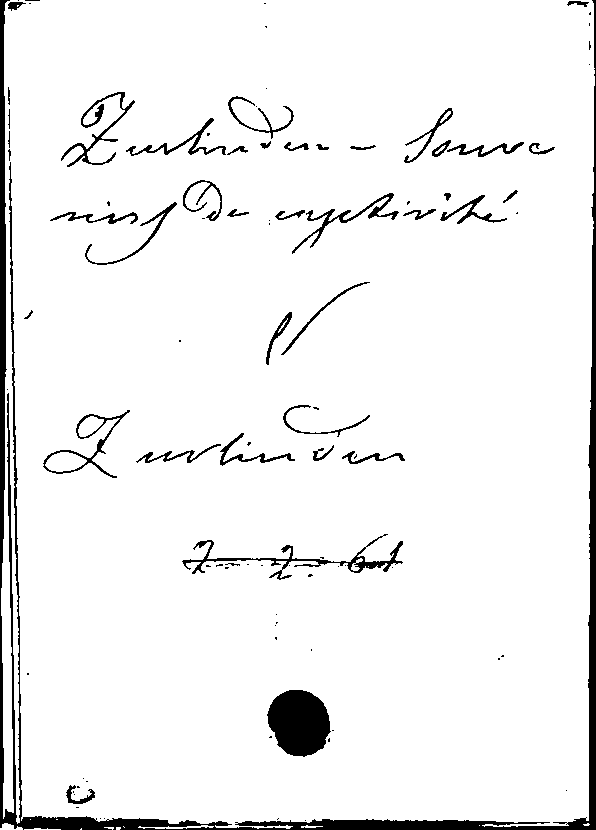 Zurlinden - Souve
nirs de captivité
V
Zurlinden
2 2. 61